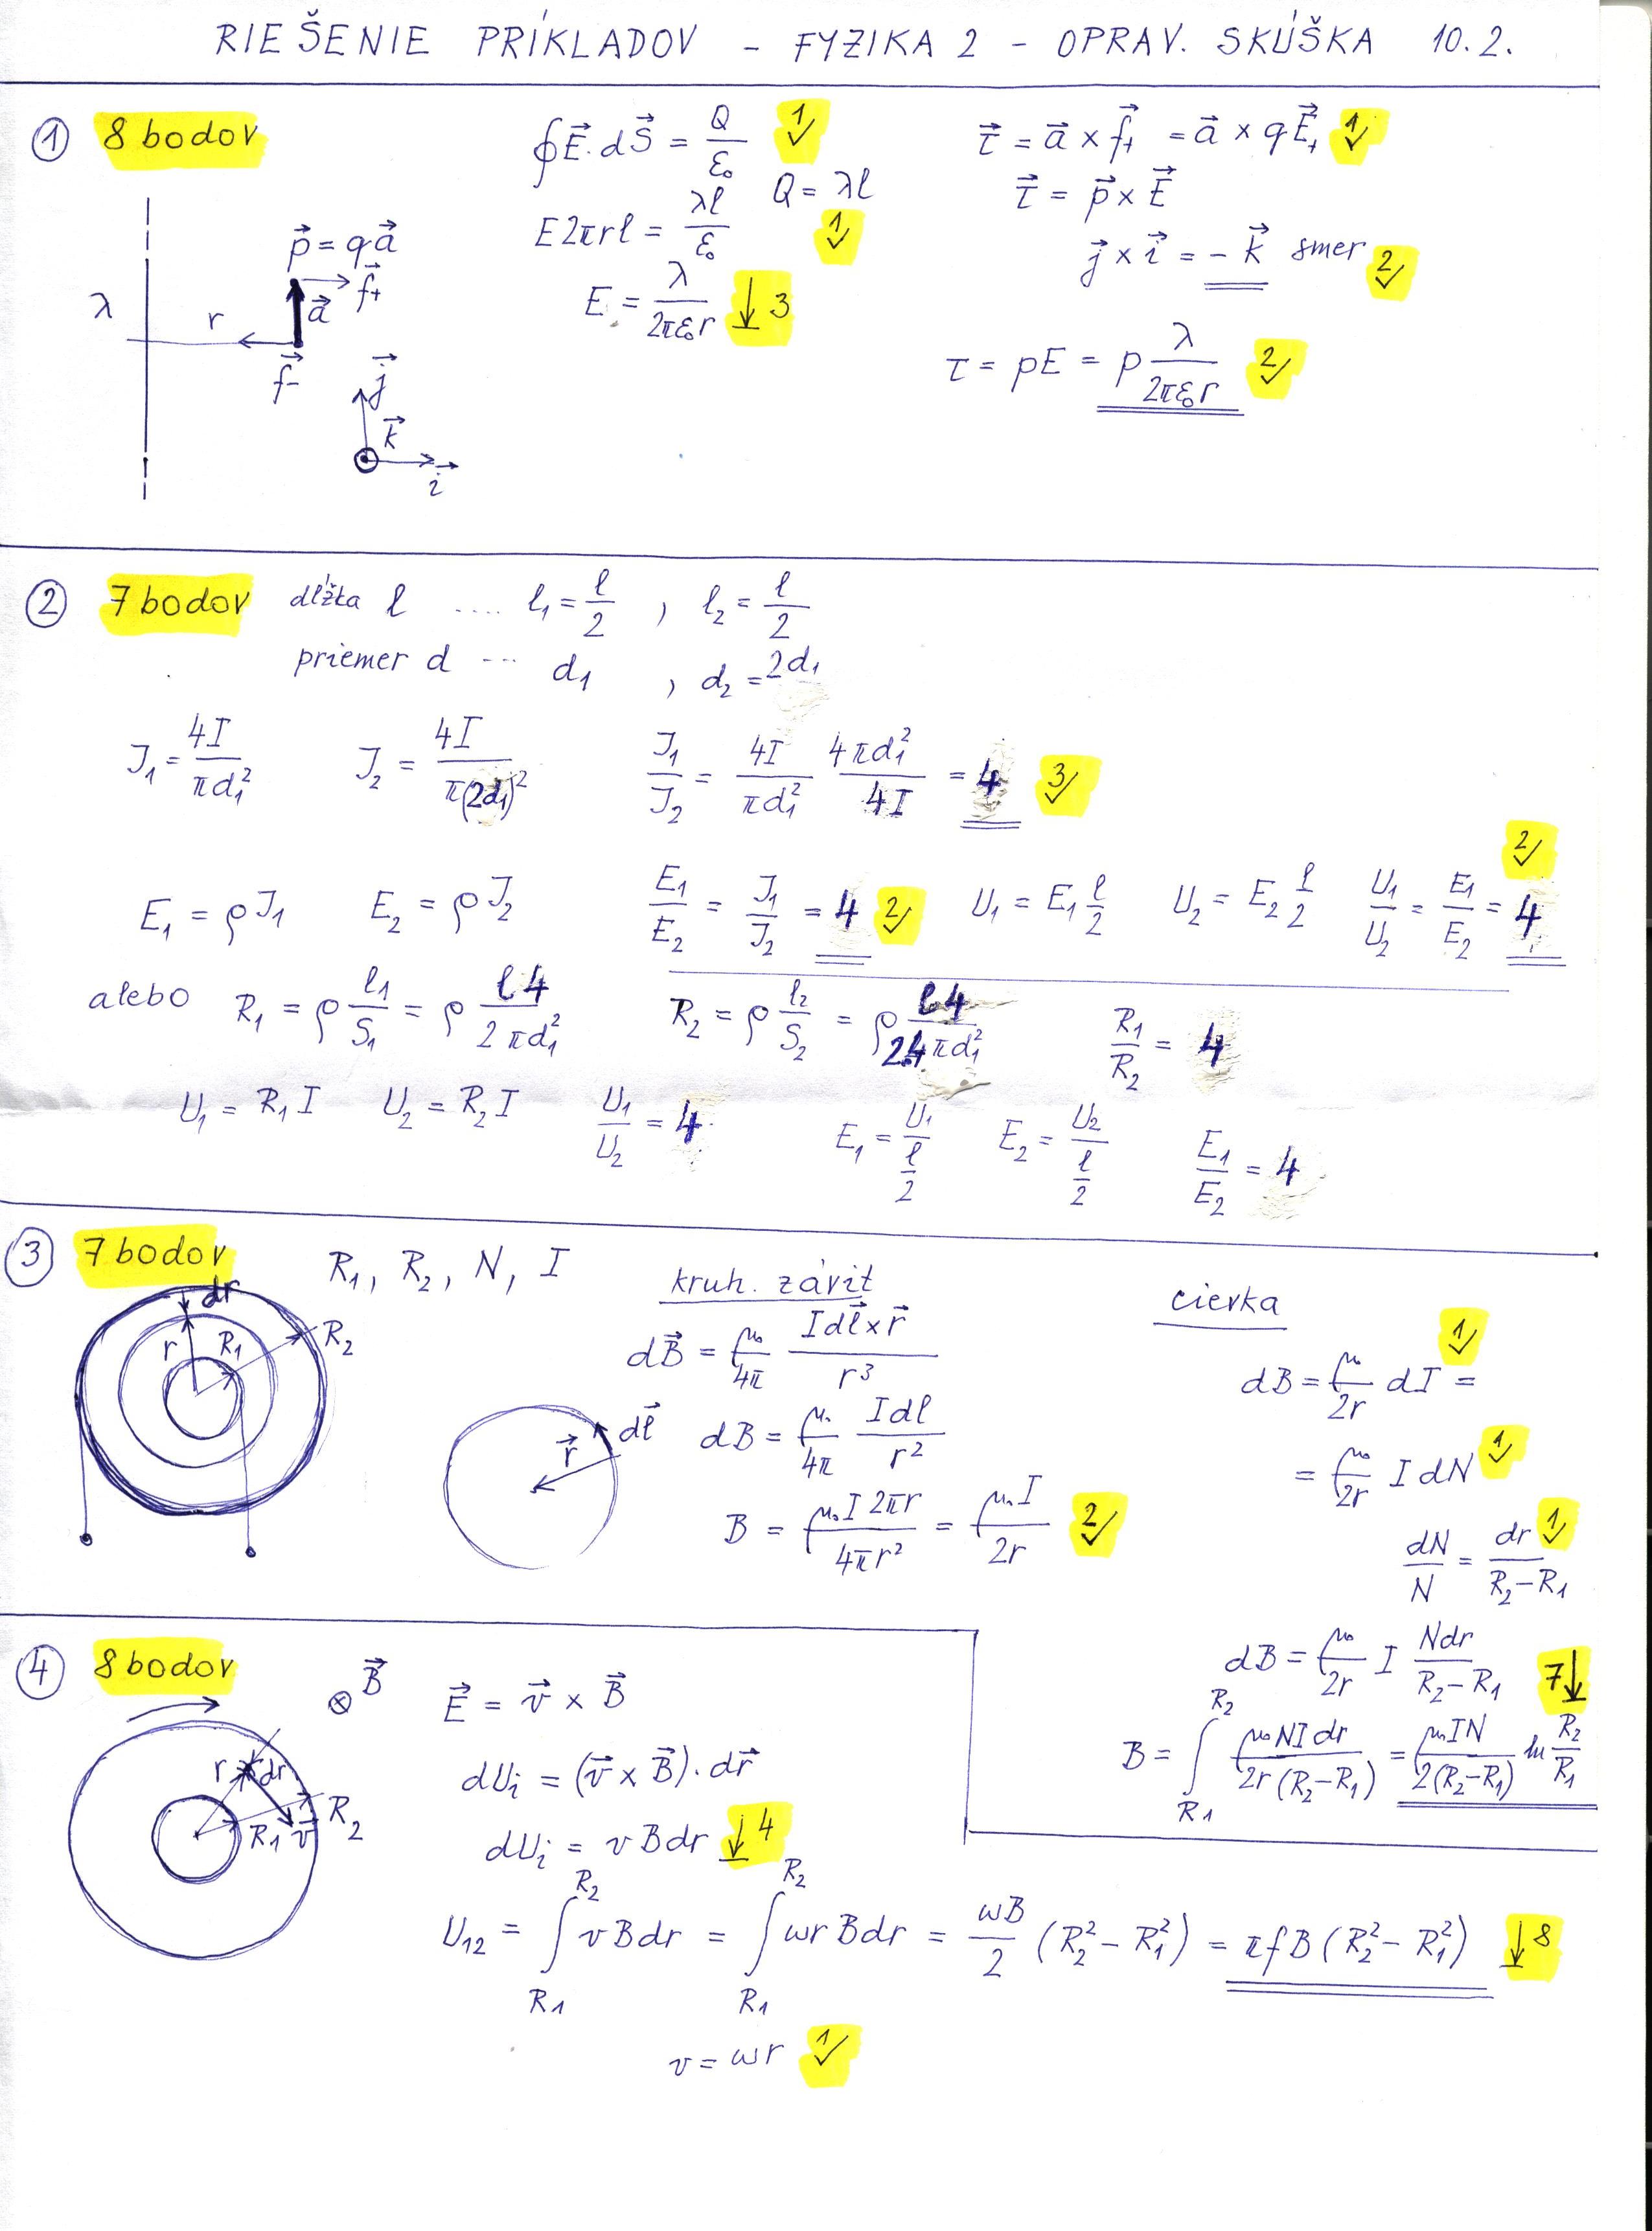 RIEŠENIE PRÍKLADOV - FYZIKA 2 - OPRAV. SKÚŠKA 10.2.
① 8 bodov
λ
r
p⃗ = qa⃗
f⃗₊
a⃗
f⃗₋
j⃗
k⃗
i⃗
∮E⃗·dS⃗ = Q/ε₀ 1✓
Q = λl
E2πrl = λl/ε₀ 1✓
E = λ/2πε₀r ↓3
τ⃗ = a⃗ × f⃗₊ = a⃗ × qE⃗₊ 1✓
τ⃗ = p⃗ × E⃗
j⃗ × i⃗ = -k⃗ smer 2✓
τ = pE = p λ/2πε₀r 2✓
② 7 bodov dĺžka l .... l₁ = l/2 , l₂ = l/2
priemer d ... d₁ , d₂ = 2d₁
J₁ = 4I/πd₁² J₂ = 4I/π(2d₁)² J₁/J₂ = 4I/πd₁² 4πd₁²/4I = 4 3✓
E₁ = ρJ₁ E₂ = ρJ₂ E₁/E₂ = J₁/J₂ = 4 2✓ U₁ = E₁ l/2 U₂ = E₂ l/2 U₁/U₂ = E₁/E₂ = 4 2✓
alebo R₁ = ρ l₁/S₁ = ρ l4/2πd₁² R₂ = ρ l₂/S₂ = ρ l4/2.4πd₁² R₁/R₂ = 4
U₁ = R₁I U₂ = R₂I U₁/U₂ = 4 E₁ = U₁/(l/2) E₂ = U₂/(l/2) E₁/E₂ = 4
③ 7 bodov R₁, R₂, N, I
dr
r
R₁
R₂
kruh. závit
dB⃗ = μ₀/4π Idl⃗×r⃗/r³
dl⃗
r⃗
dB = μ₀/4π Idl/r²
B = μ₀I2πr/4πr² = μ₀I/2r 2✓
cievka
dB = μ₀/2r dI = 1✓
= μ₀/2r I dN 1✓
dN/N = dr/R₂-R₁ 1✓
dB = μ₀/2r I Ndr/R₂-R₁ 7↓
B = ∫R₁R₂ μ₀NIdr/2r(R₂-R₁) = μ₀IN/2(R₂-R₁) ln R₂/R₁
④ 8 bodov
B⃗
r
dr
R₂
R₁
v⃗
E⃗ = v⃗ × B⃗
dUᵢ = (v⃗ × B⃗).dr⃗
dUᵢ = vBdr ↓4
U₁₂ = ∫R₁R₂ vBdr = ∫R₁R₂ ωrBdr = ωB/2 (R₂² - R₁²) = πfB(R₂² - R₁²) ↓8
v = ωr 1✓